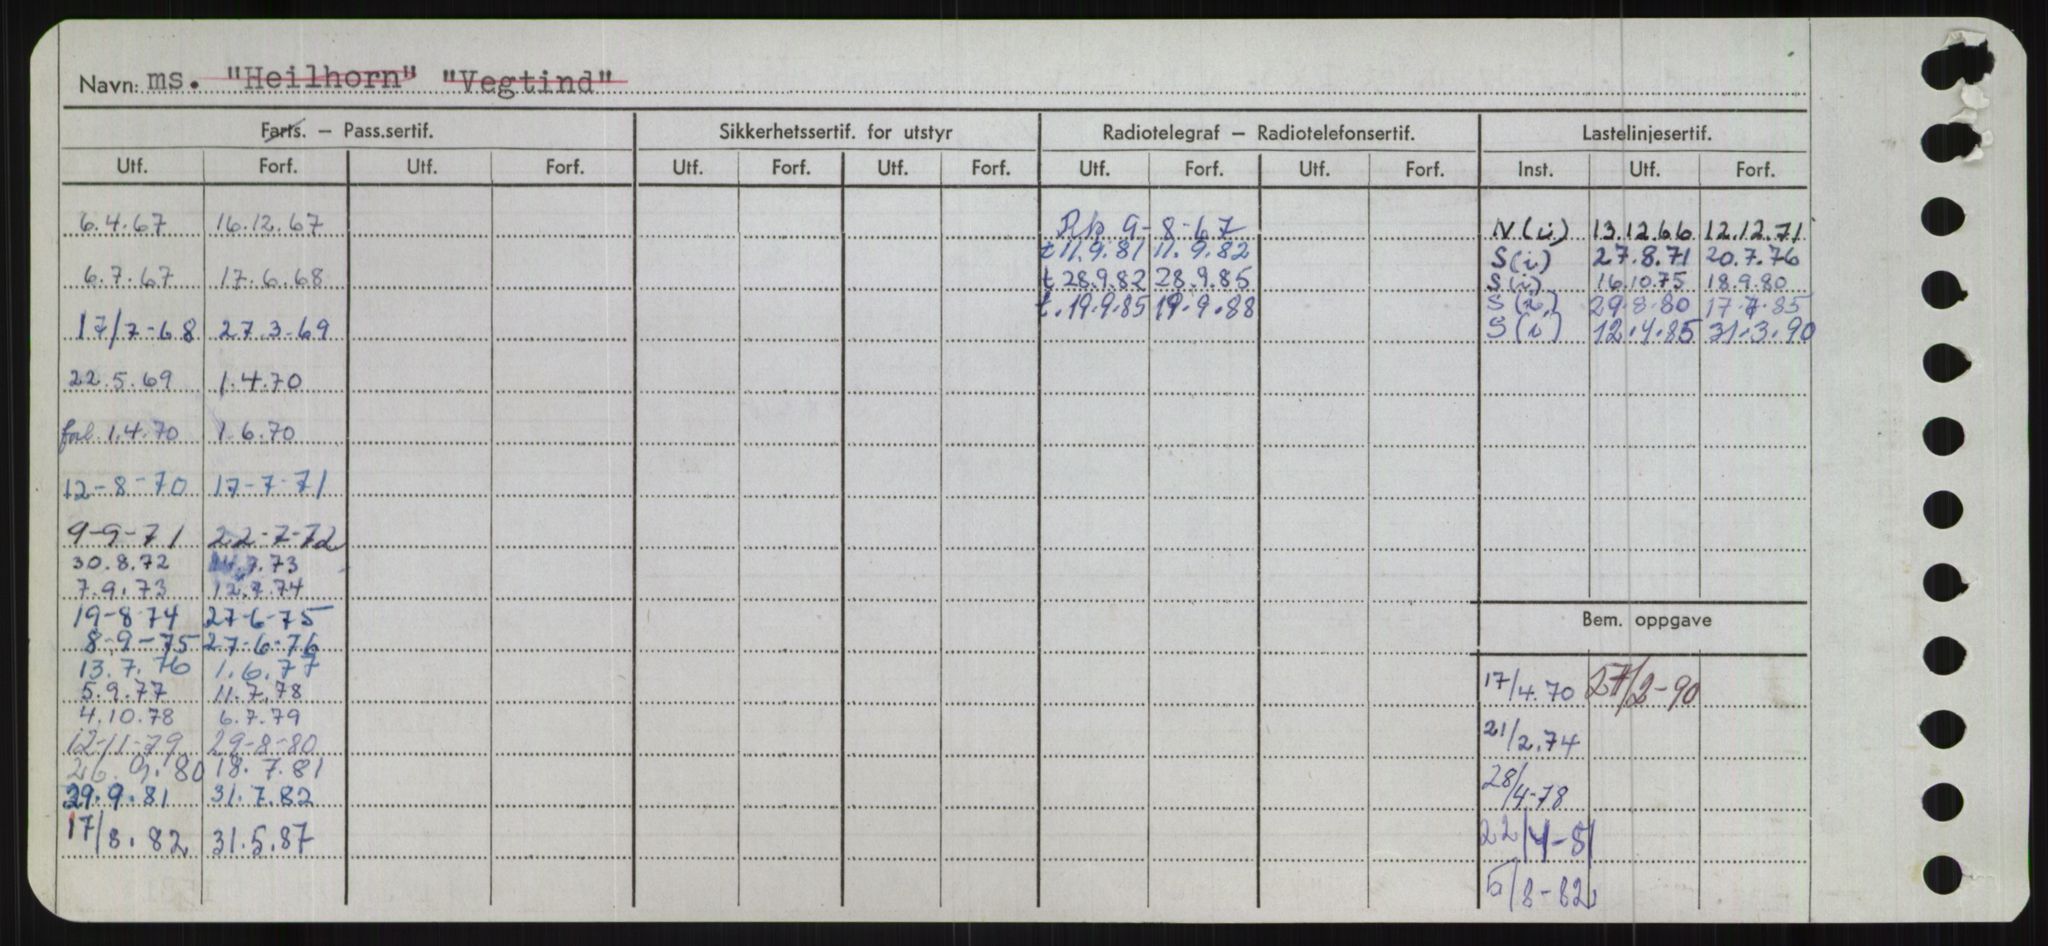 Navn: ms. "Heilhorn" "Vegtind"
Farts. – Pass.sertif. Sikkerhetssertif. for utstyr Radiotelegraf – Radiotelefonsertif. Lastelinjesertif.
Utf. Forf. Utf. Forf. Utf. Forf. Utf. Forf. Utf. Forf. Utf. Forf. Inst. Utf. Forf.
6.4.67 16.12.67 9-8-67 N(i) 13.12.66 12.12.71
t 11.9.81 11.9.82 S(i) 27.8.71 20.7.76
6.7.67 17.6.68 t 28.9.82 28.9.85 S(i) 16.10.75 18.9.80
t. 19.9.85 19.9.88 S(i) 29.8.80 17.7.85
17/7-68 27.3.69 S(i) 12.4.85 31.3.90
22.5.69 1.4.70
forl. 1.4.70 1.6.70
12-8-70 17-7-71
9-9-71 22-7-72
30.8.72 7.73
7.9.73 12.7.74
19-8-74 27-6-75
Bem. oppgave
8-9-75 27-6-76
13.7.76 1.6.77
5.9.77 11.7.78 17/4.70 27/2-90
4.10.78 6.7.79
12-11-79 29-8-80 21/2.74
26.9.80 18.7.81
29.9.81 31.7.82 28/4-78
17/8.82 31.5.87 22/4-81
5/8-82